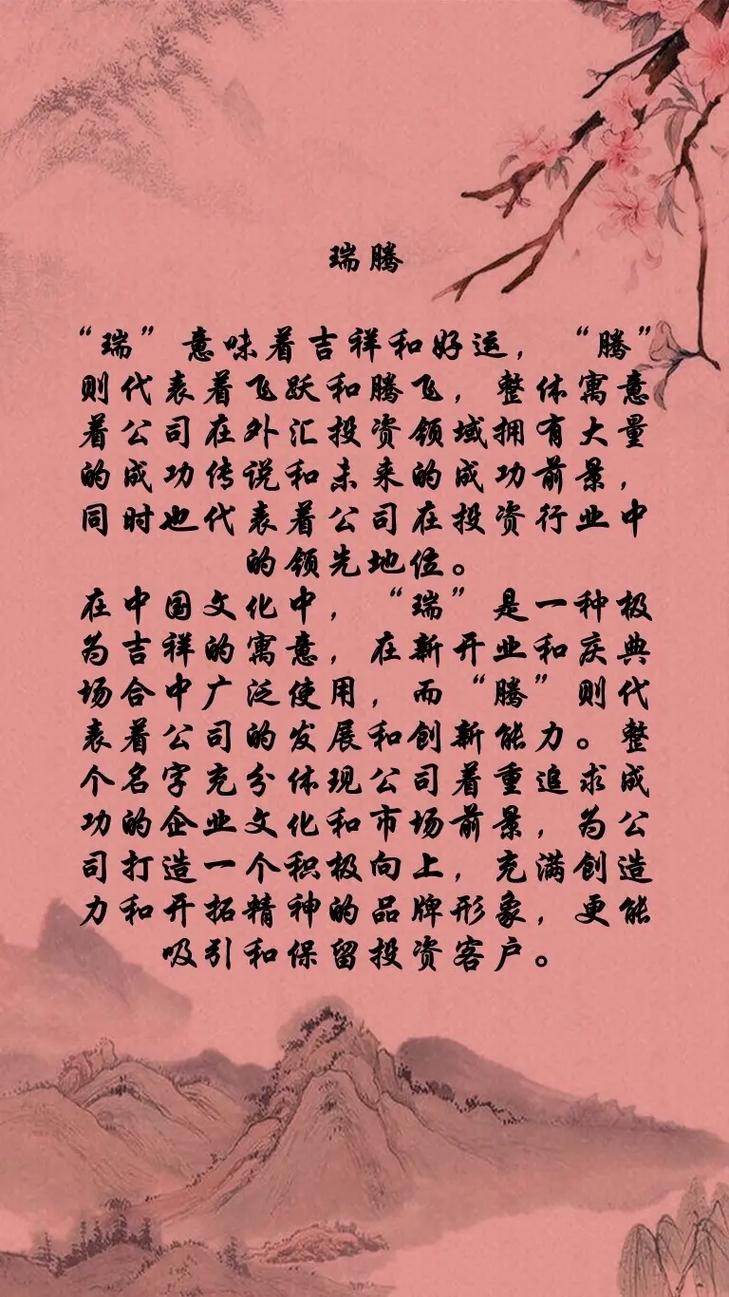 瑞腾
“瑞”意味着吉祥和好运，“腾”
则代表着飞跃和腾飞，整体寓意
着公司在外汇投资领域拥有大量
的成功传说和未来的成功前景，
同时也代表着公司在投资行业中
的领先地位。
在中国文化中，“瑞”是一种极
为吉祥的寓意，在新开业和庆典
场合中广泛使用，而“腾”则代
表着公司的发展和创新能力。整
个名字充分体现公司着重追求成
功的企业文化和市场前景，为公
司打造一个积极向上，充满创造
力和开拓精神的品牌形象，更能
吸引和保留投资客户。